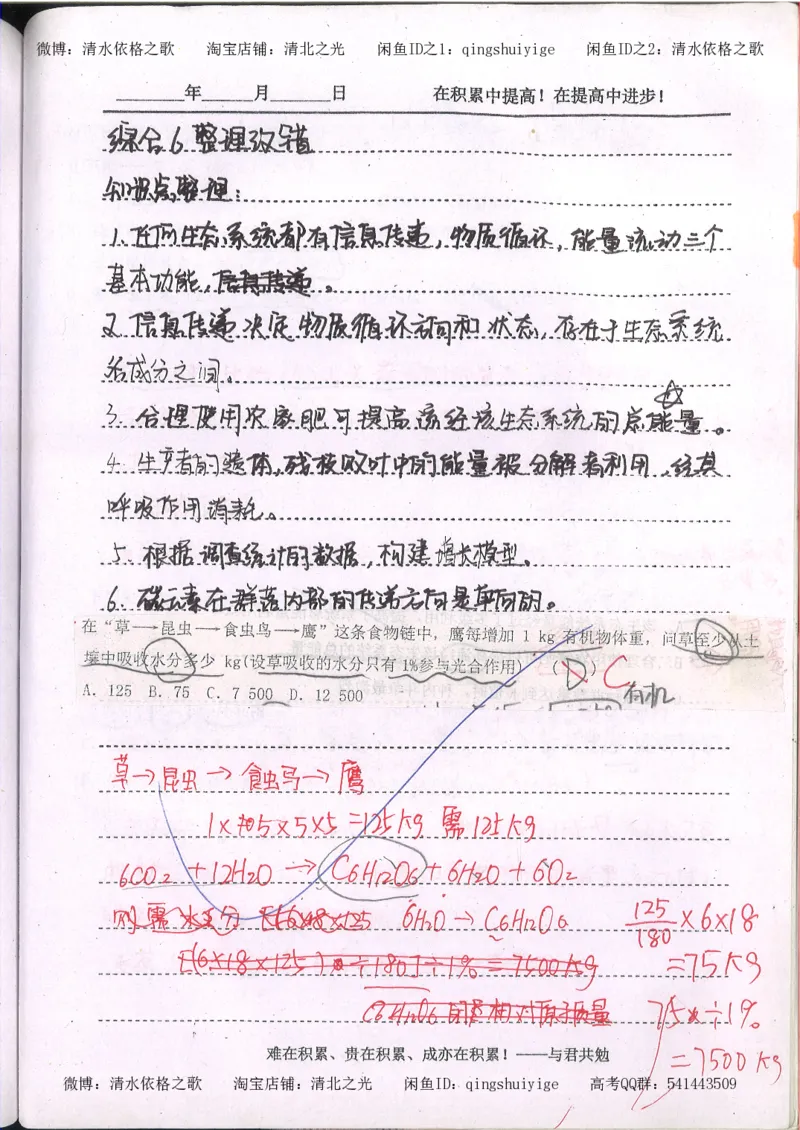 微博：清水依格之歌 淘宝店铺：清北之光 闲鱼ID之1：qingshuiyige 闲鱼ID之2：清水依格之歌
______年______月______日 在积累中提高！在提高中进步！
综合6整理改错
知识点整理：
1.任何生态系统都有信息传递，物质循环，能量流动三个
基本功能，信息传递。
2.信息传递决定物质循环方向和状态，存在于生态系统
各成分之间。
3.合理使用农家肥可提高流经该生态系统的总能量。
4.生产者的遗体，残枝败叶中的能量被分解者利用，经其
呼吸作用消耗。
5.根据调查统计的数据，构建增长模型。
6.碳元素在群落内部的传递方向是单向的。
在“草→昆虫→食虫鸟→鹰”这条食物链中，鹰每增加 1 kg 有机物体重，问草至少从土
壤中吸收水分多少 kg(设草吸收的水分只有 1%参与光合作用) （D） C
A. 125 B. 75 C. 7 500 D. 12 500 有机
草→昆虫→食虫鸟→鹰
1××5×5×5=125kg 需125kg
6CO2+12H2O→C6H12O6+6H2O+6O2
则需水 6H2O→C6H12O6 125/180×6×18
[(6×18×125)÷180]÷1%=7500kg =75kg
C6H12O6 相对原子质量 75÷1%
=7500kg
难在积累、贵在积累、成亦在积累！——与君共勉
微博：清水依格之歌 淘宝店铺：清北之光 闲鱼ID：qingshuiyige 高考QQ群：541443509